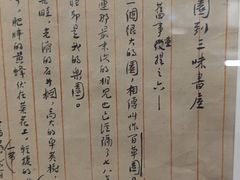 園到三味書屋
舊事重提之六
一個很大的園，相傳叫作百草園。
連那最末次的相見也已經隔了七八
卻是我的樂園。
畦，光滑的石井欄，高大的皂莢樹，
肥胖的黃蜂伏在菜花上，輕捷的